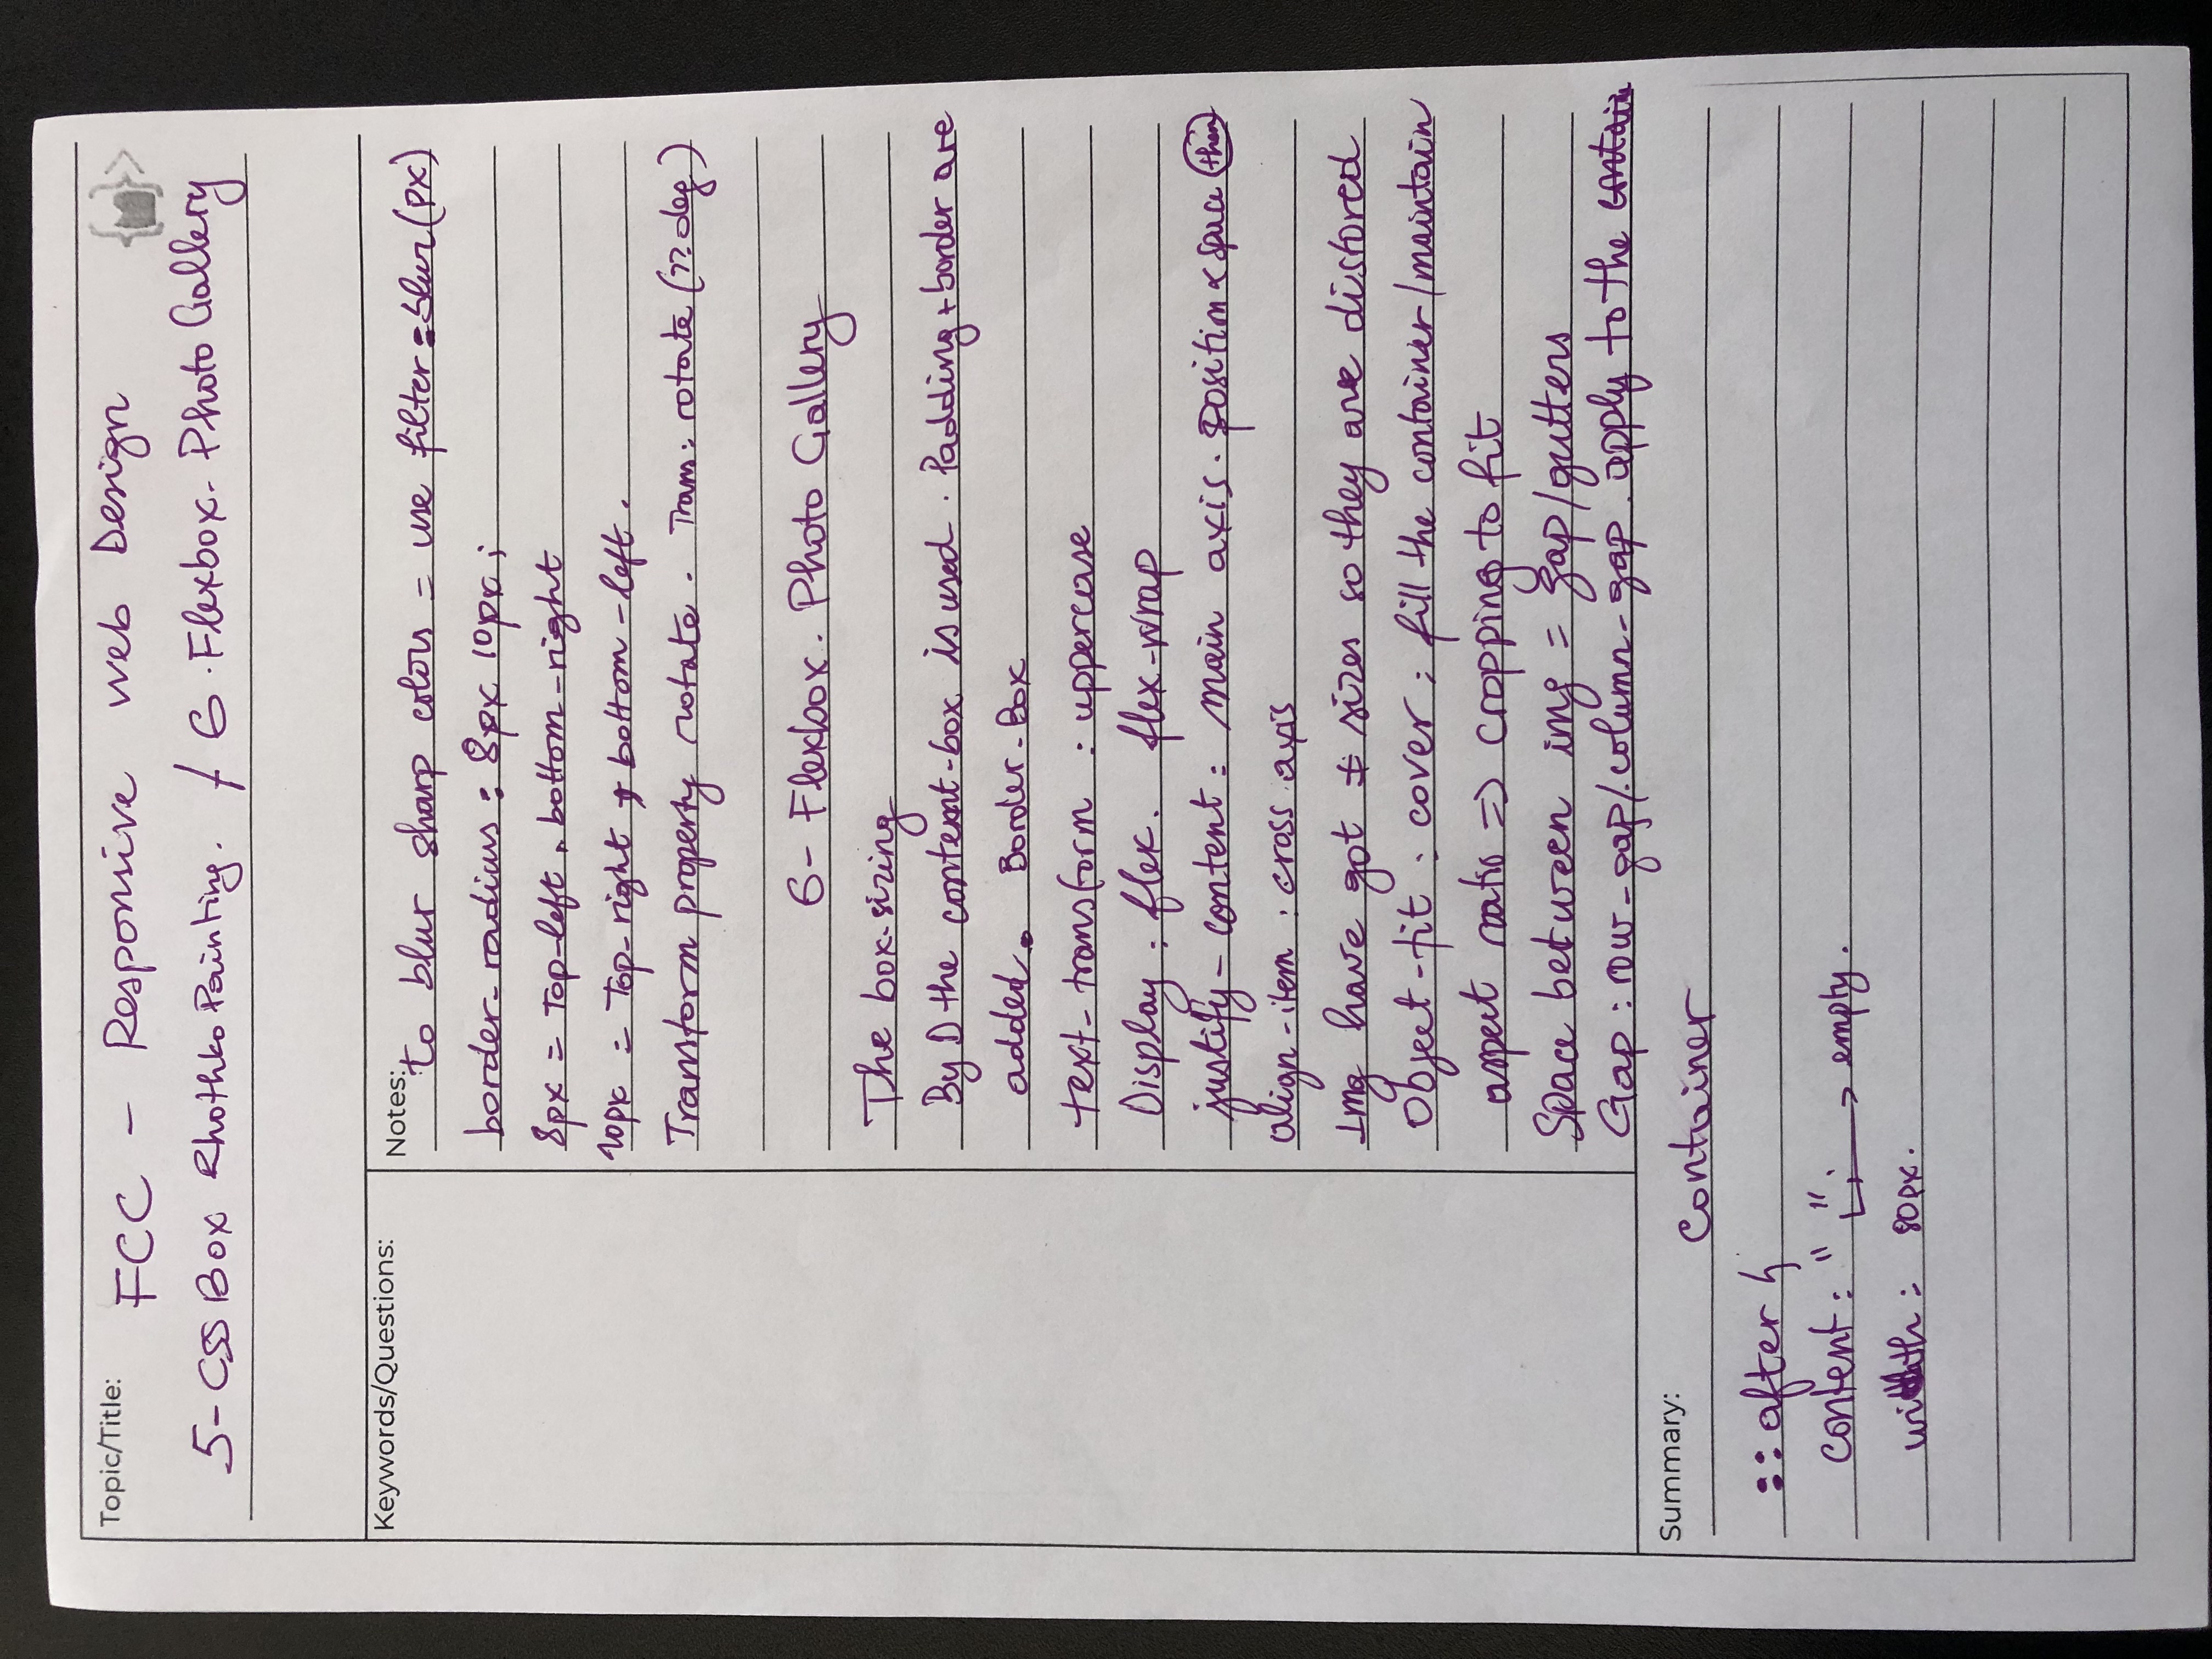 Topic/Title: FCC - Responsive web Design
5- CSS Box Rhothko Painting. / 6. Flexbox- Photo Gallery
Keywords/Questions:
Notes: to blur sharp colors = use filter = blur(px)
border-radius: 8px 10px;
8px = Top-left, bottom-right
10px = Top-right, bottom-left.
Transform property rotate. Trans: rotate (??deg)
6- Flexbox. Photo Gallery
The box-sizing
By D the content-box is used. Padding + border are
added. Border-Box
text-transform : uppercase
Display : flex. flex-wrap
justify-content: main axis. position & space them
align-item : cross axis
Img have got ≠ sizes so they are distored
Object-fit : cover ; fill the container/maintain
aspect ratio => cropping to fit
Space between img = gap/gutters
Gap : row-gap/.column-gap. apply to the contain
Summary:
Container
::after {
content: " "; → empty.
width: 80px.